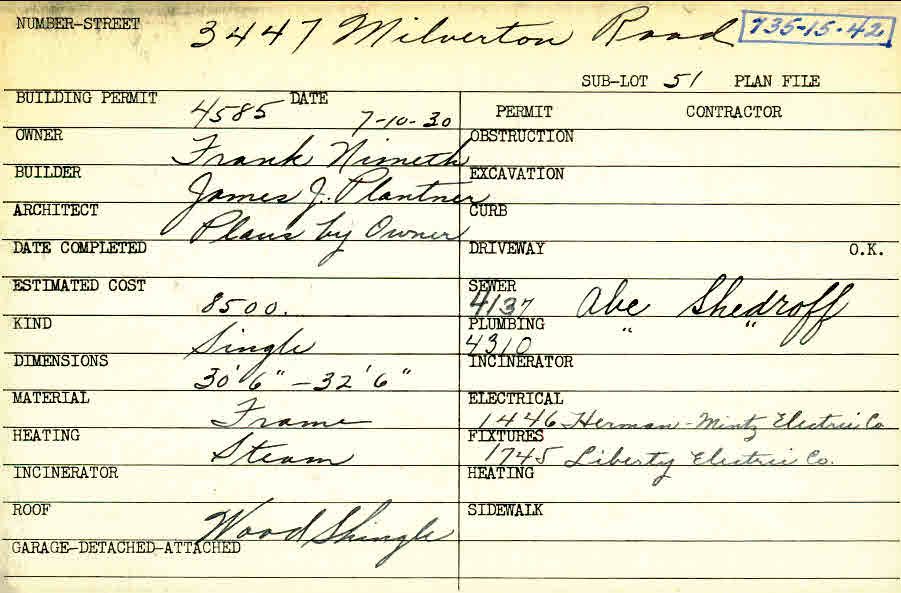 NUMBER-STREET 3447 Milverton Road 735-15-42
SUB-LOT 51 PLAN FILE
BUILDING PERMIT 4585 DATE 7-10-30
OWNER Frank Nimeth
BUILDER James J. Plantner
ARCHITECT Plans by Owner
DATE COMPLETED
ESTIMATED COST 8500.
KIND Single
DIMENSIONS 30'6" - 32'6"
MATERIAL Frame
HEATING Steam
INCINERATOR
ROOF Wood Shingle
GARAGE-DETACHED-ATTACHED
PERMIT CONTRACTOR
OBSTRUCTION
EXCAVATION
CURB
DRIVEWAY O.K.
SEWER 4137 Abe Shedroff
PLUMBING 4310 " "
INCINERATOR
ELECTRICAL 1446 Herman-Mintz Electric Co
FIXTURES 1745 Liberty Electric Co.
HEATING
SIDEWALK